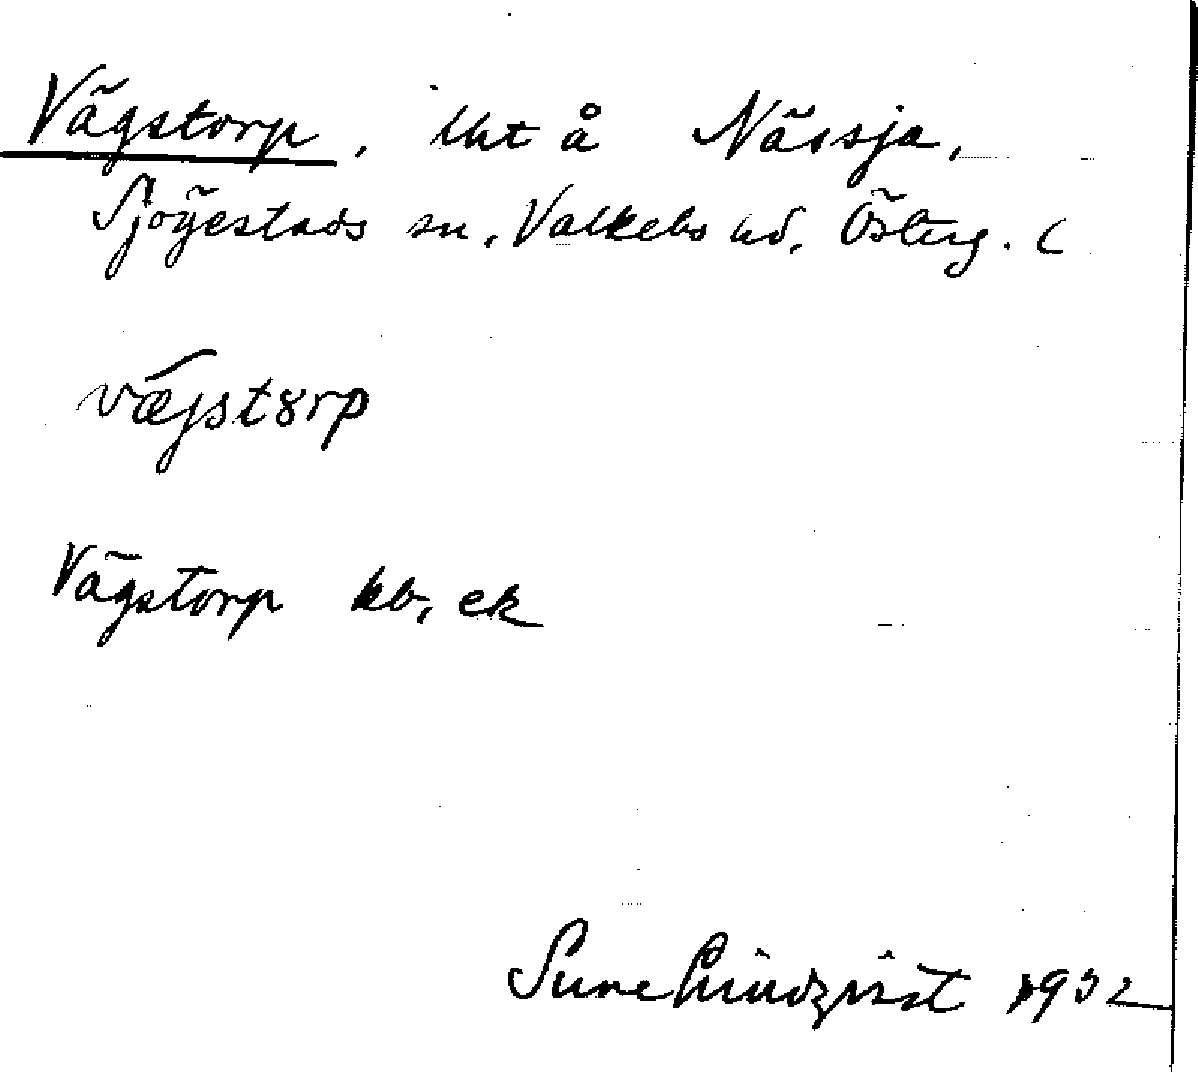 Vägstorp, lht å Nässja,
Sjögestads sn, Valkebo hd, Österg. (
væjstȣrp
Vägstorp kb, ek
Sune Lindqvist 1932